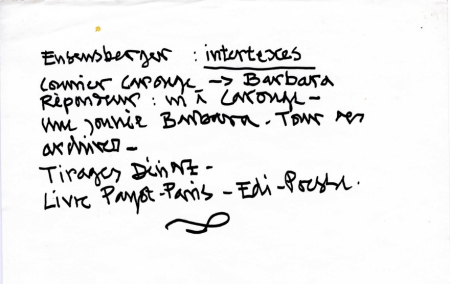 Ensensberger : intertexes
Courrier Carouge -> Barbara
Répondeur : m à Carouge -
une journée Barbara. Tour des
archives -
Tirages
Livre Payot-Paris - Edi-Poche.